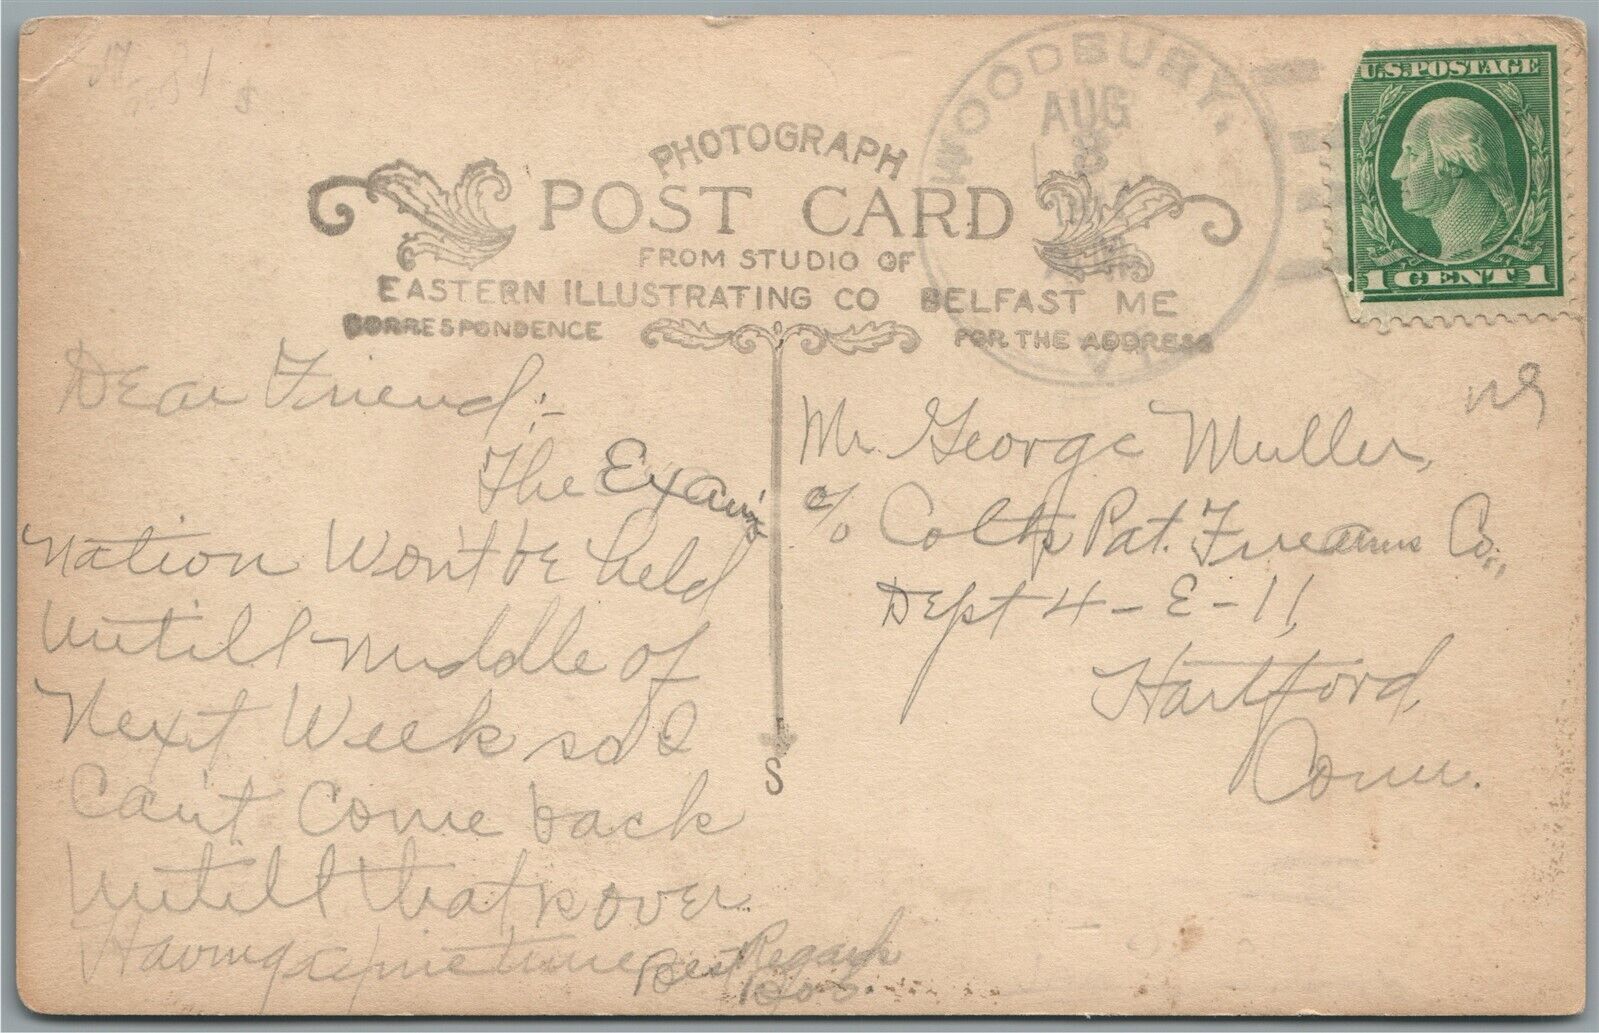 U.S. POSTAGE
1 CENT 1
WOODBURY,
AUG
3
VT.
PHOTOGRAPH
POST CARD
FROM STUDIO OF
EASTERN ILLUSTRATING CO BELFAST ME
CORRESPONDENCE
FOR THE ADDRESS
Dear Friend:-
The Exami
nation Won't be held
Untill Middle of
Next Week so I
Can't Come back
Untill that is over
Having a fine time Best Regards
S
Mr. George Muller,
c/o Colts Pat. Firearms Co.,
Dept 4-E-11,
Hartford,
Conn.